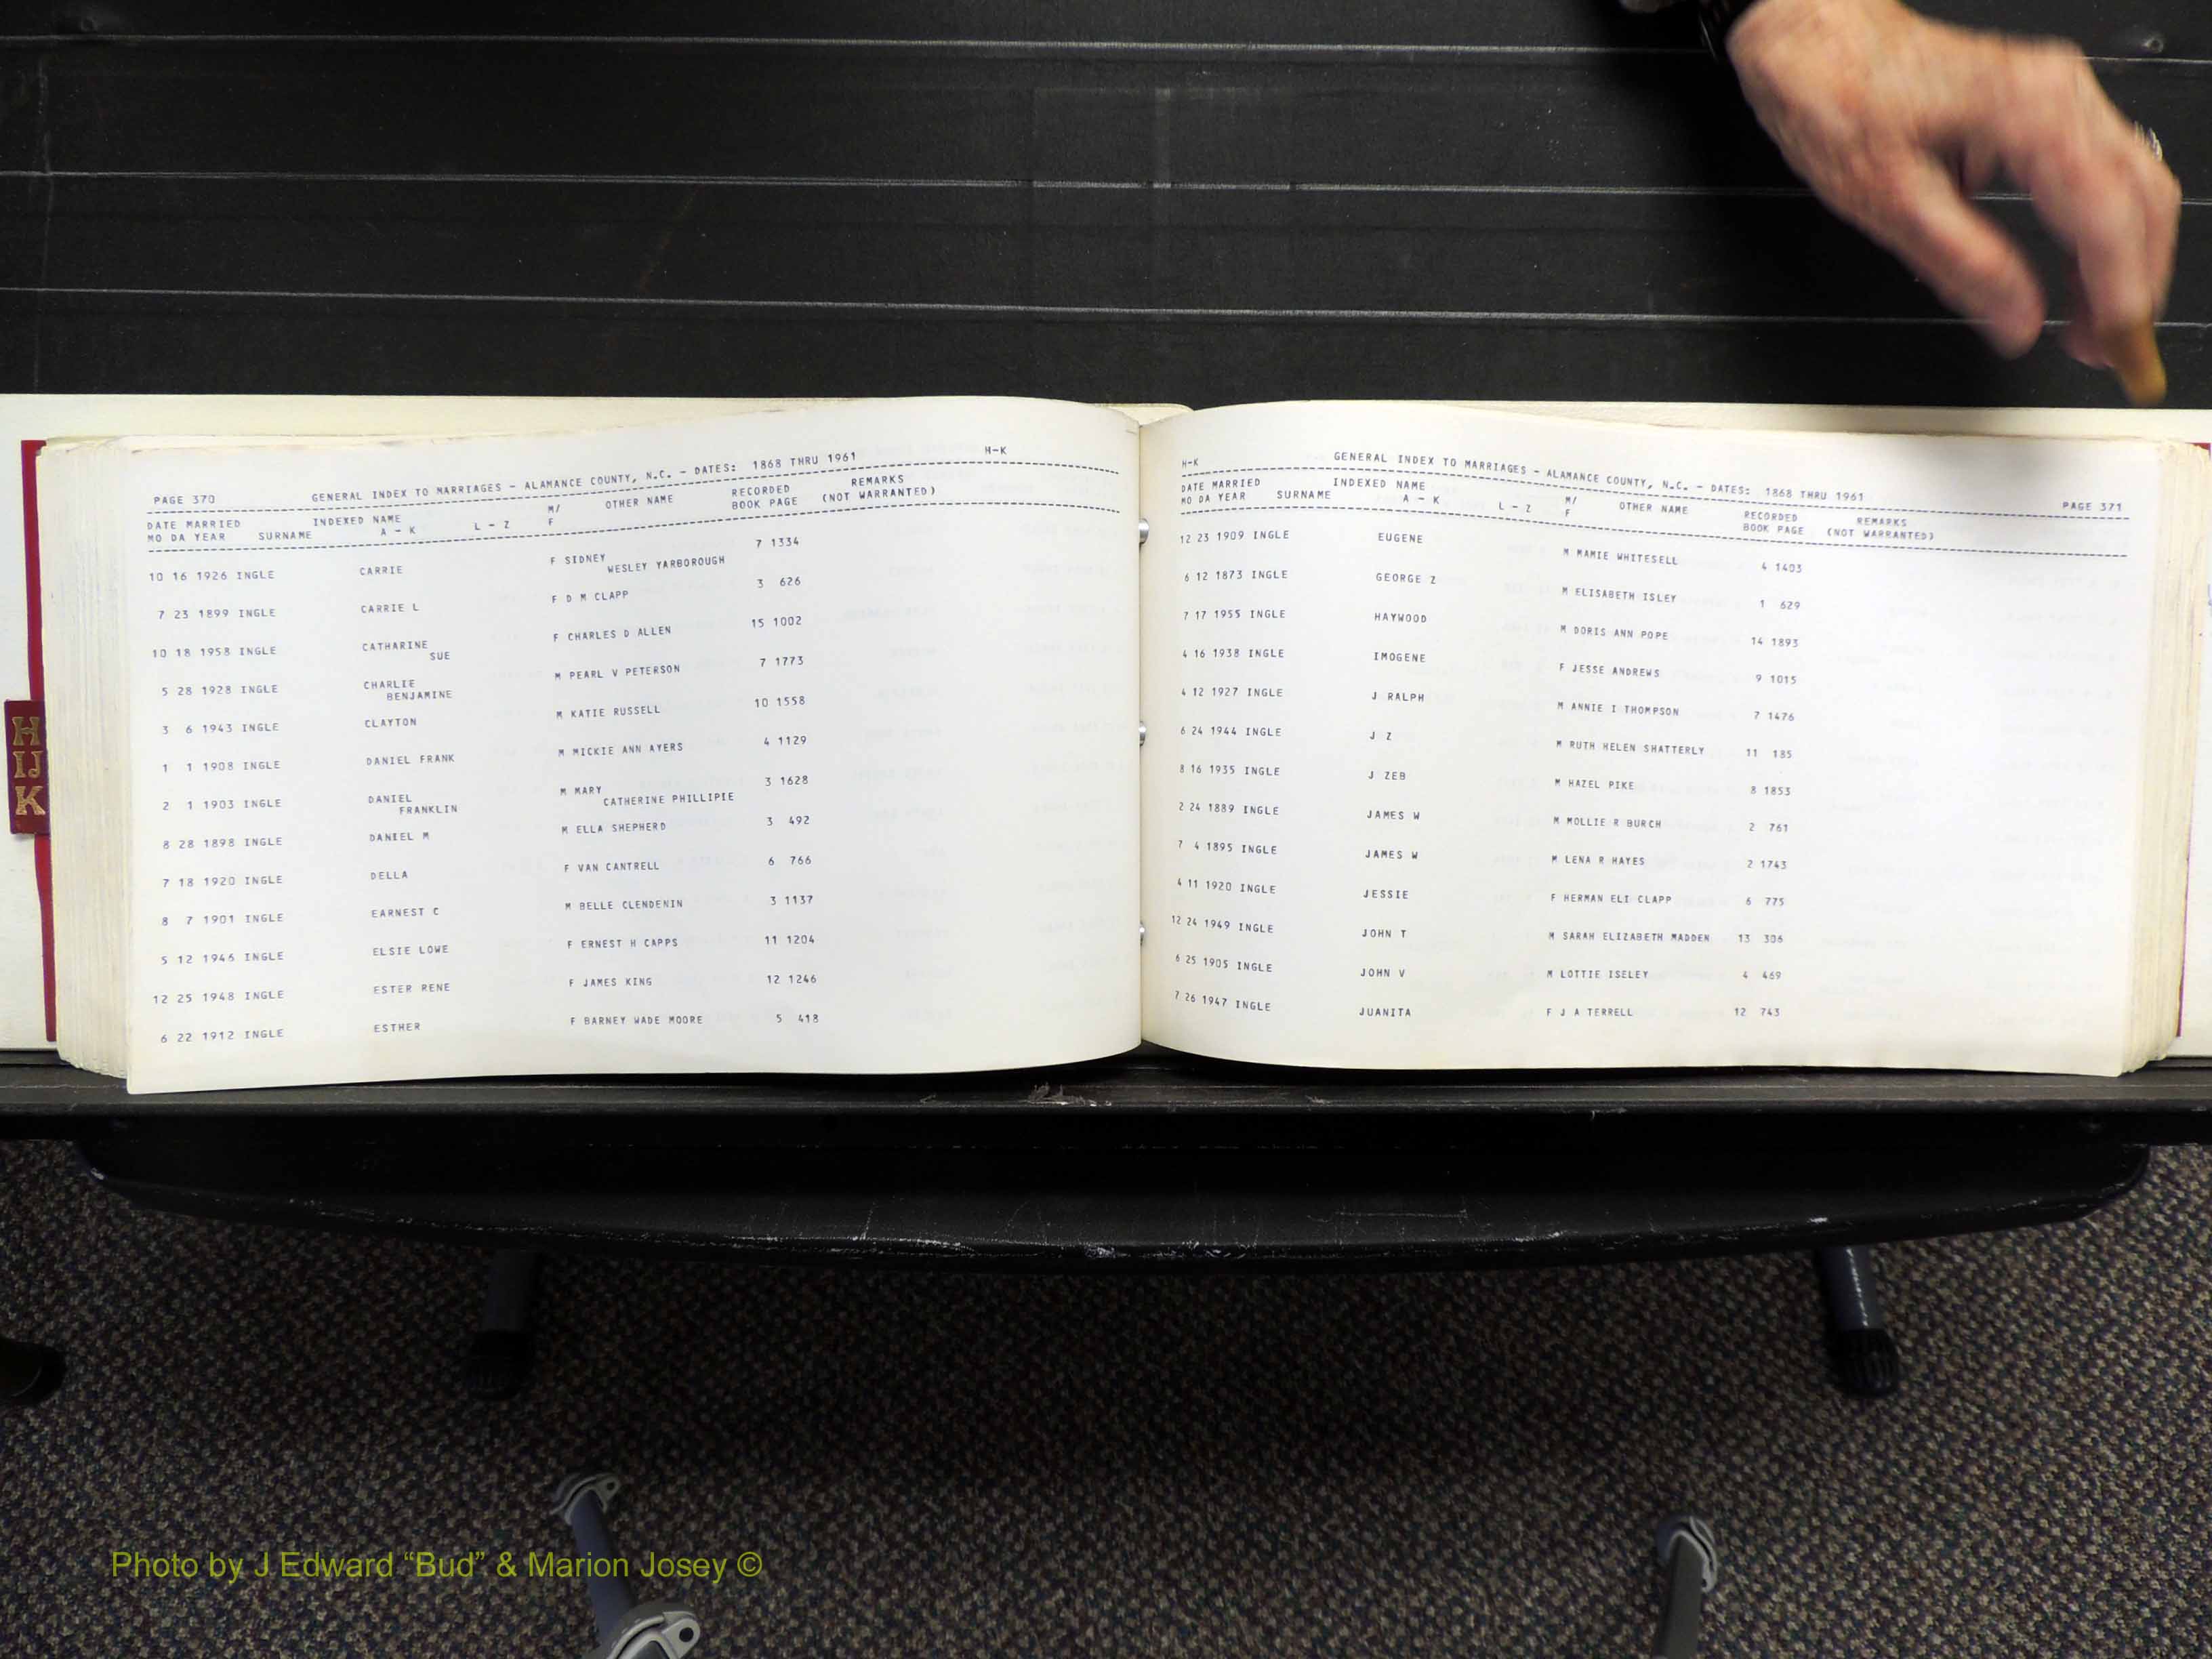 PAGE 370 GENERAL INDEX TO MARRIAGES - ALAMANCE COUNTY, N.C. - DATES: 1868 THRU 1961 H-K
DATE MARRIED INDEXED NAME M/ OTHER NAME RECORDED REMARKS
MO DA YEAR SURNAME A - K L - Z F BOOK PAGE (NOT WARRANTED)
10 16 1926 INGLE CARRIE F SIDNEY 7 1334
WESLEY YARBOROUGH
7 23 1899 INGLE CARRIE L F D M CLAPP 3 626
10 18 1958 INGLE CATHARINE F CHARLES D ALLEN 15 1002
SUE
5 28 1928 INGLE CHARLIE M PEARL V PETERSON 7 1773
BENJAMINE
3 6 1943 INGLE CLAYTON M KATIE RUSSELL 10 1558
1 1 1908 INGLE DANIEL FRANK M MICKIE ANN AYERS 4 1129
2 1 1903 INGLE DANIEL M MARY 3 1628
FRANKLIN CATHERINE PHILLIPIE
8 28 1898 INGLE DANIEL M M ELLA SHEPHERD 3 492
7 18 1920 INGLE DELLA F VAN CANTRELL 6 766
8 7 1901 INGLE EARNEST C M BELLE CLENDENIN 3 1137
5 12 1946 INGLE ELSIE LOWE F ERNEST H CAPPS 11 1204
12 25 1948 INGLE ESTER RENE F JAMES KING 12 1246
6 22 1912 INGLE ESTHER F BARNEY WADE MOORE 5 418
H-K GENERAL INDEX TO MARRIAGES - ALAMANCE COUNTY, N.C. - DATES: 1868 THRU 1961 PAGE 371
DATE MARRIED INDEXED NAME M/ OTHER NAME RECORDED REMARKS
MO DA YEAR SURNAME A - K L - Z F BOOK PAGE (NOT WARRANTED)
12 23 1909 INGLE EUGENE M MAMIE WHITESELL 4 1403
6 12 1873 INGLE GEORGE Z M ELISABETH ISLEY 1 629
7 17 1955 INGLE HAYWOOD M DORIS ANN POPE 14 1893
4 16 1938 INGLE IMOGENE F JESSE ANDREWS 9 1015
4 12 1927 INGLE J RALPH M ANNIE I THOMPSON 7 1476
6 24 1944 INGLE J Z M RUTH HELEN SHATTERLY 11 185
8 16 1935 INGLE J ZEB M HAZEL PIKE 8 1853
2 24 1889 INGLE JAMES W M MOLLIE R BURCH 2 761
7 4 1895 INGLE JAMES W M LENA R HAYES 2 1743
4 11 1920 INGLE JESSIE F HERMAN ELI CLAPP 6 775
12 24 1949 INGLE JOHN T M SARAH ELIZABETH MADDEN 13 306
6 25 1905 INGLE JOHN V M LOTTIE ISELEY 4 469
7 26 1947 INGLE JUANITA F J A TERRELL 12 743
H
IJ
K
Photo by J Edward “Bud” & Marion Josey ©